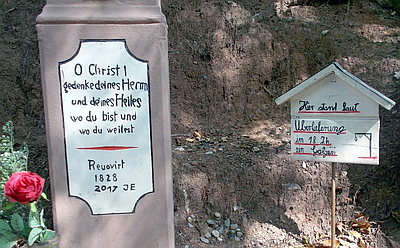 O Christ!
gedenke deines Herrn
und deines Heiles
wo du bist und
wo du weilest
Renovirt
1828
2017 JE
Hier stand laut
Überlieferung
im 18. Jh.
ein Galgen